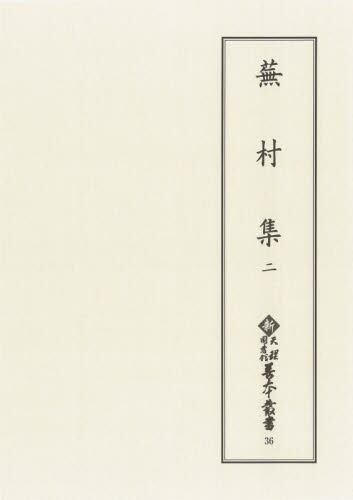 蕪村集 二
新 天理図書館 善本叢書
36